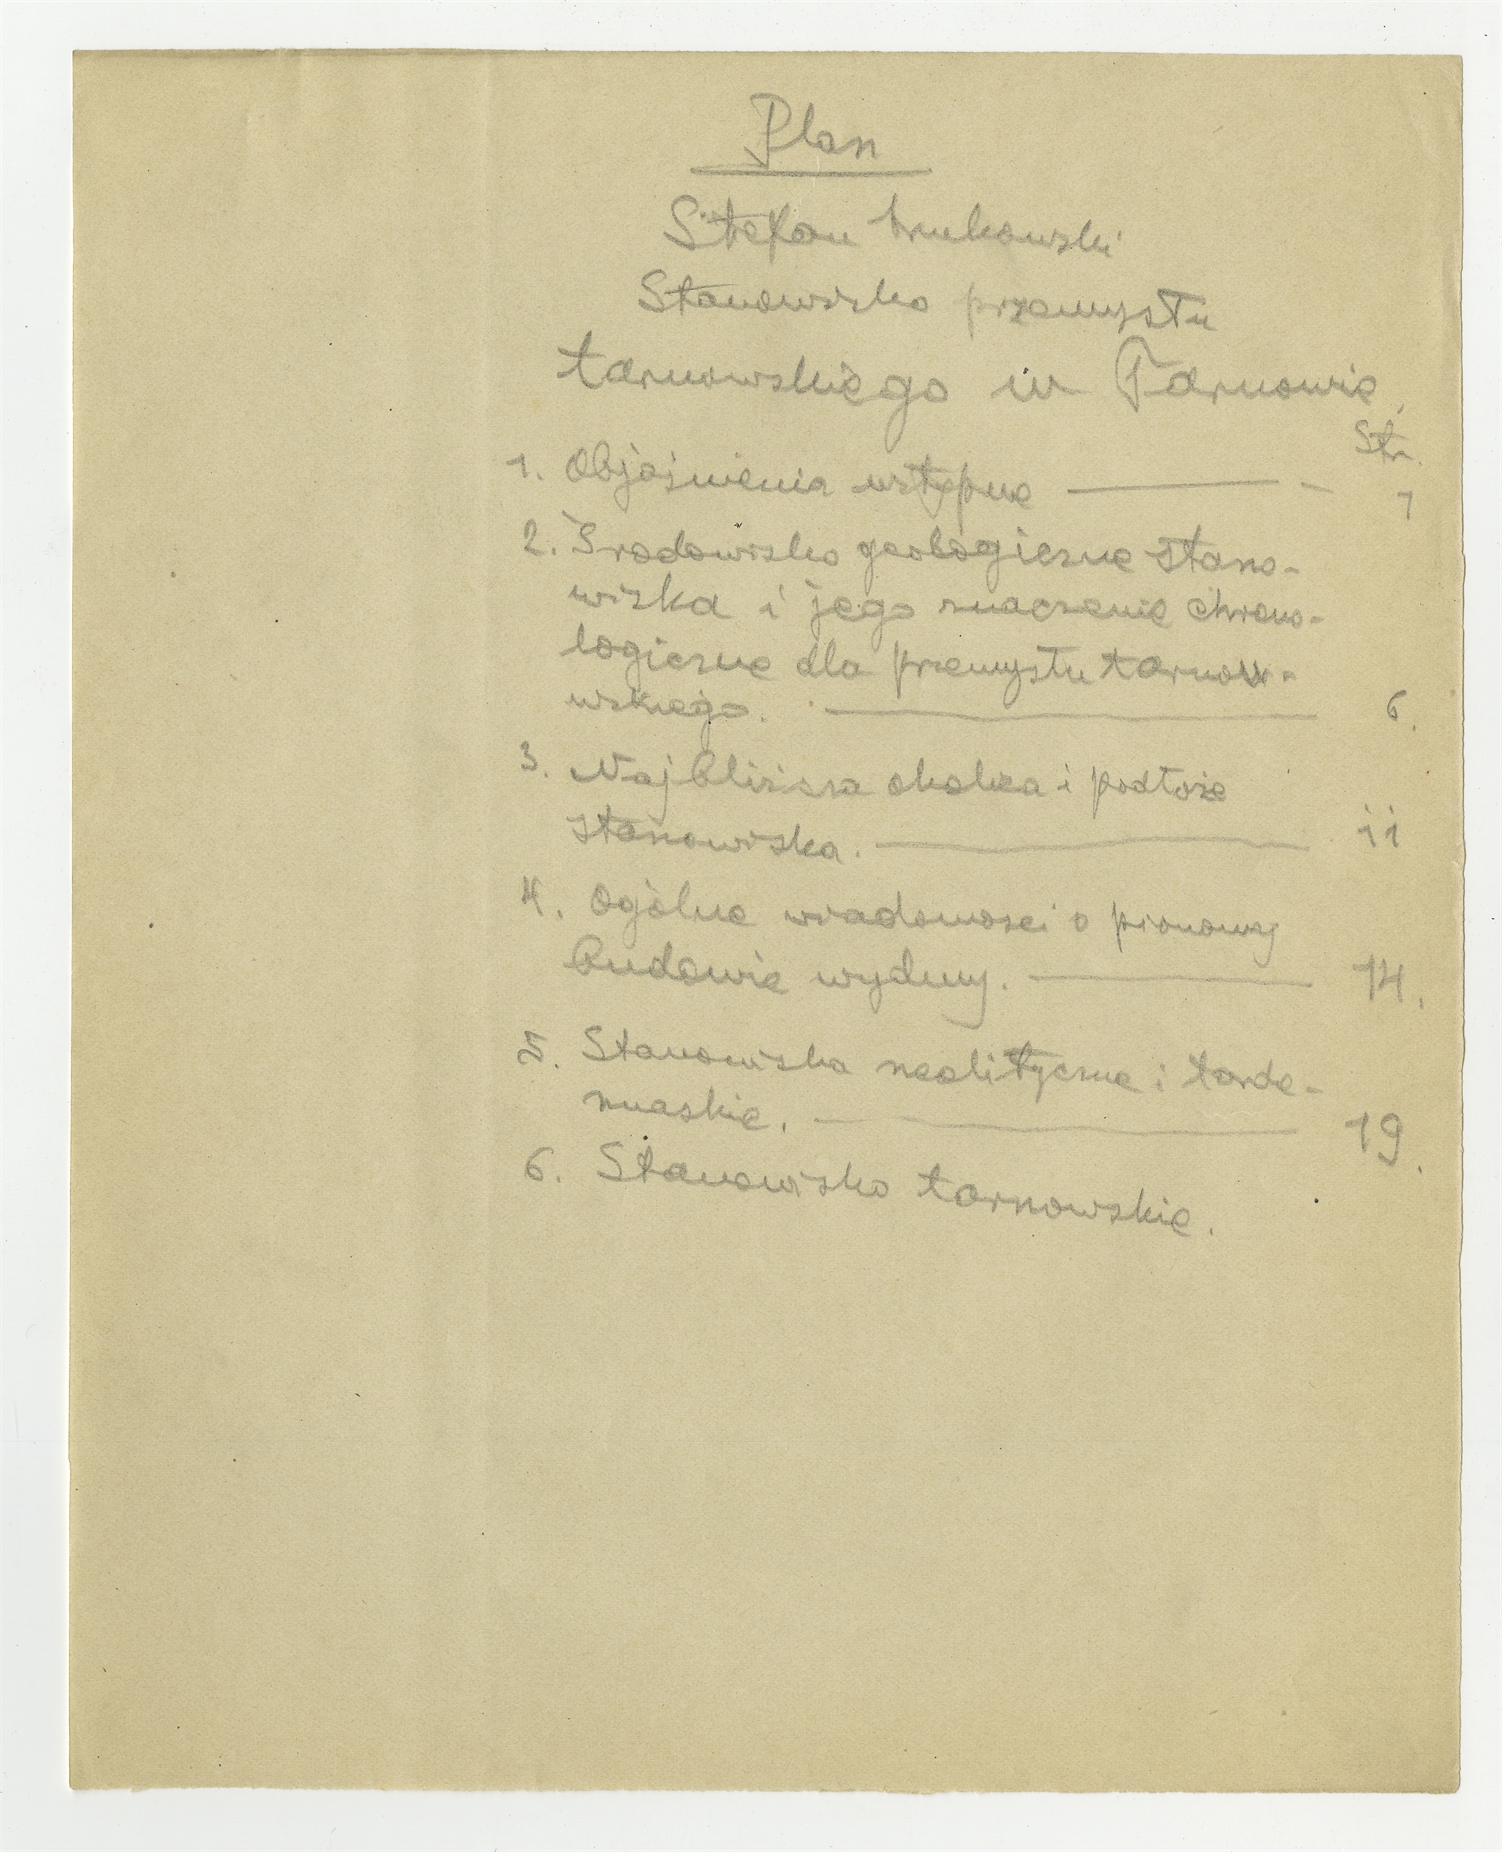 Plan
Stefan Krukowski
Stanowisko przemysłu
tarnowskiego w Tarnowie,
Str.
1. Objaśnienia wstępne — - 1
2. Środowisko geologiczne stano-
wiska i jego znaczenie chrono-
logiczne dla przemysłu tarnow-
wskiego. — 6.
3. Najbliższa okolica i podłoże
stanowiska. — 11
4. Ogólne wiadomości o pionowej
budowie wydmy. — 14.
5. Stanowiska neolityczne i tarde-
nuaskie. — 19.
6. Stanowisko tarnowskie.